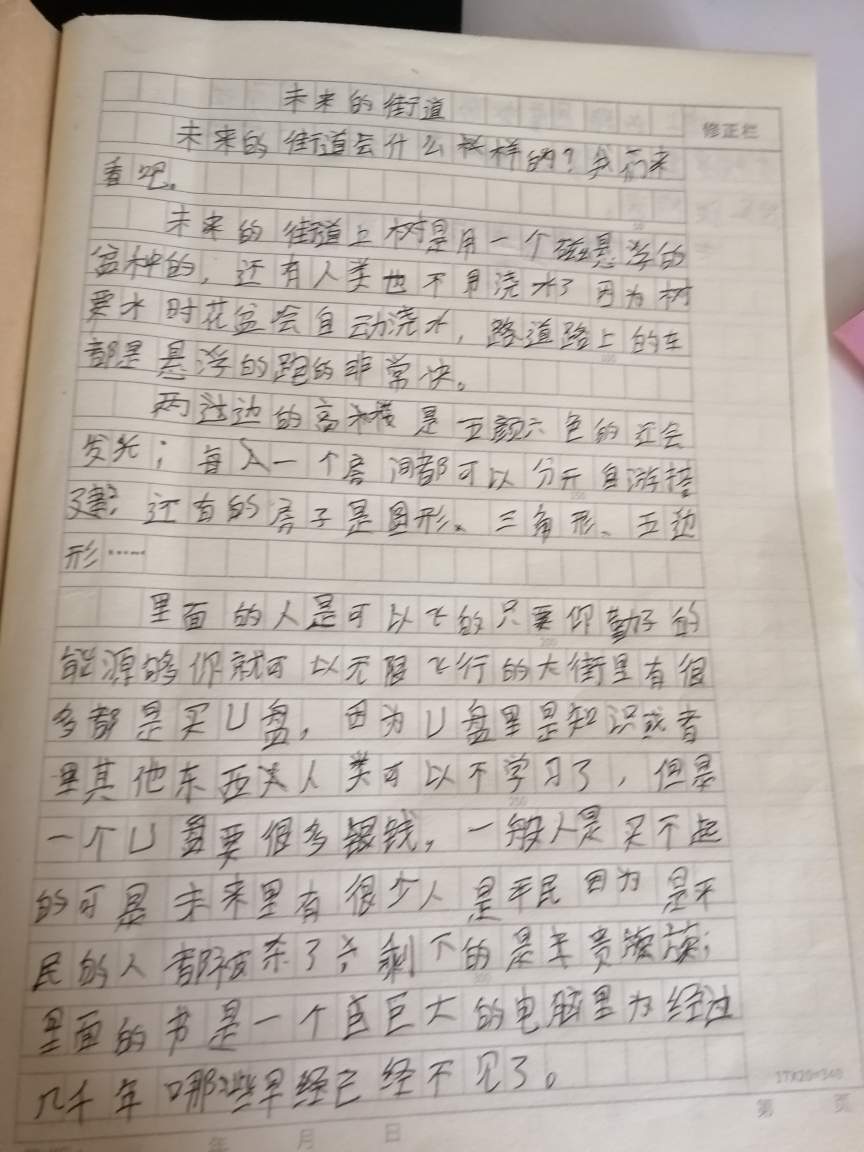 未来的街道
修正栏
未来的街道会什么样的?我们来
看吧。
未来的街道上树是用一个磁悬浮的
盆种的,还有人类也不用浇水了因为树
要水时花盆会自动浇水,路道路上的车
都是悬浮的跑的非常快。
两边的高楼是五颜六色的还会
发光;每一个房间都可以分开自
建;还有的房子是圆形、三角形、五边
形……
里面的人是可以飞的只要你的
能源够你就可以无限飞行的大街里有很
多都是买U盘,因为U盘里是知识或者
里其他东西人类可以不学习了,但是
一个U盘要很多银钱,一般人是买不起
的可是未来里有很少人是平民因为是平
民的人都被杀了剩下的是贵族;
里面的书是一个巨大的电脑里为经过
几千年哪些早经已经不见了。
17X20=340
第 页
年 月 日